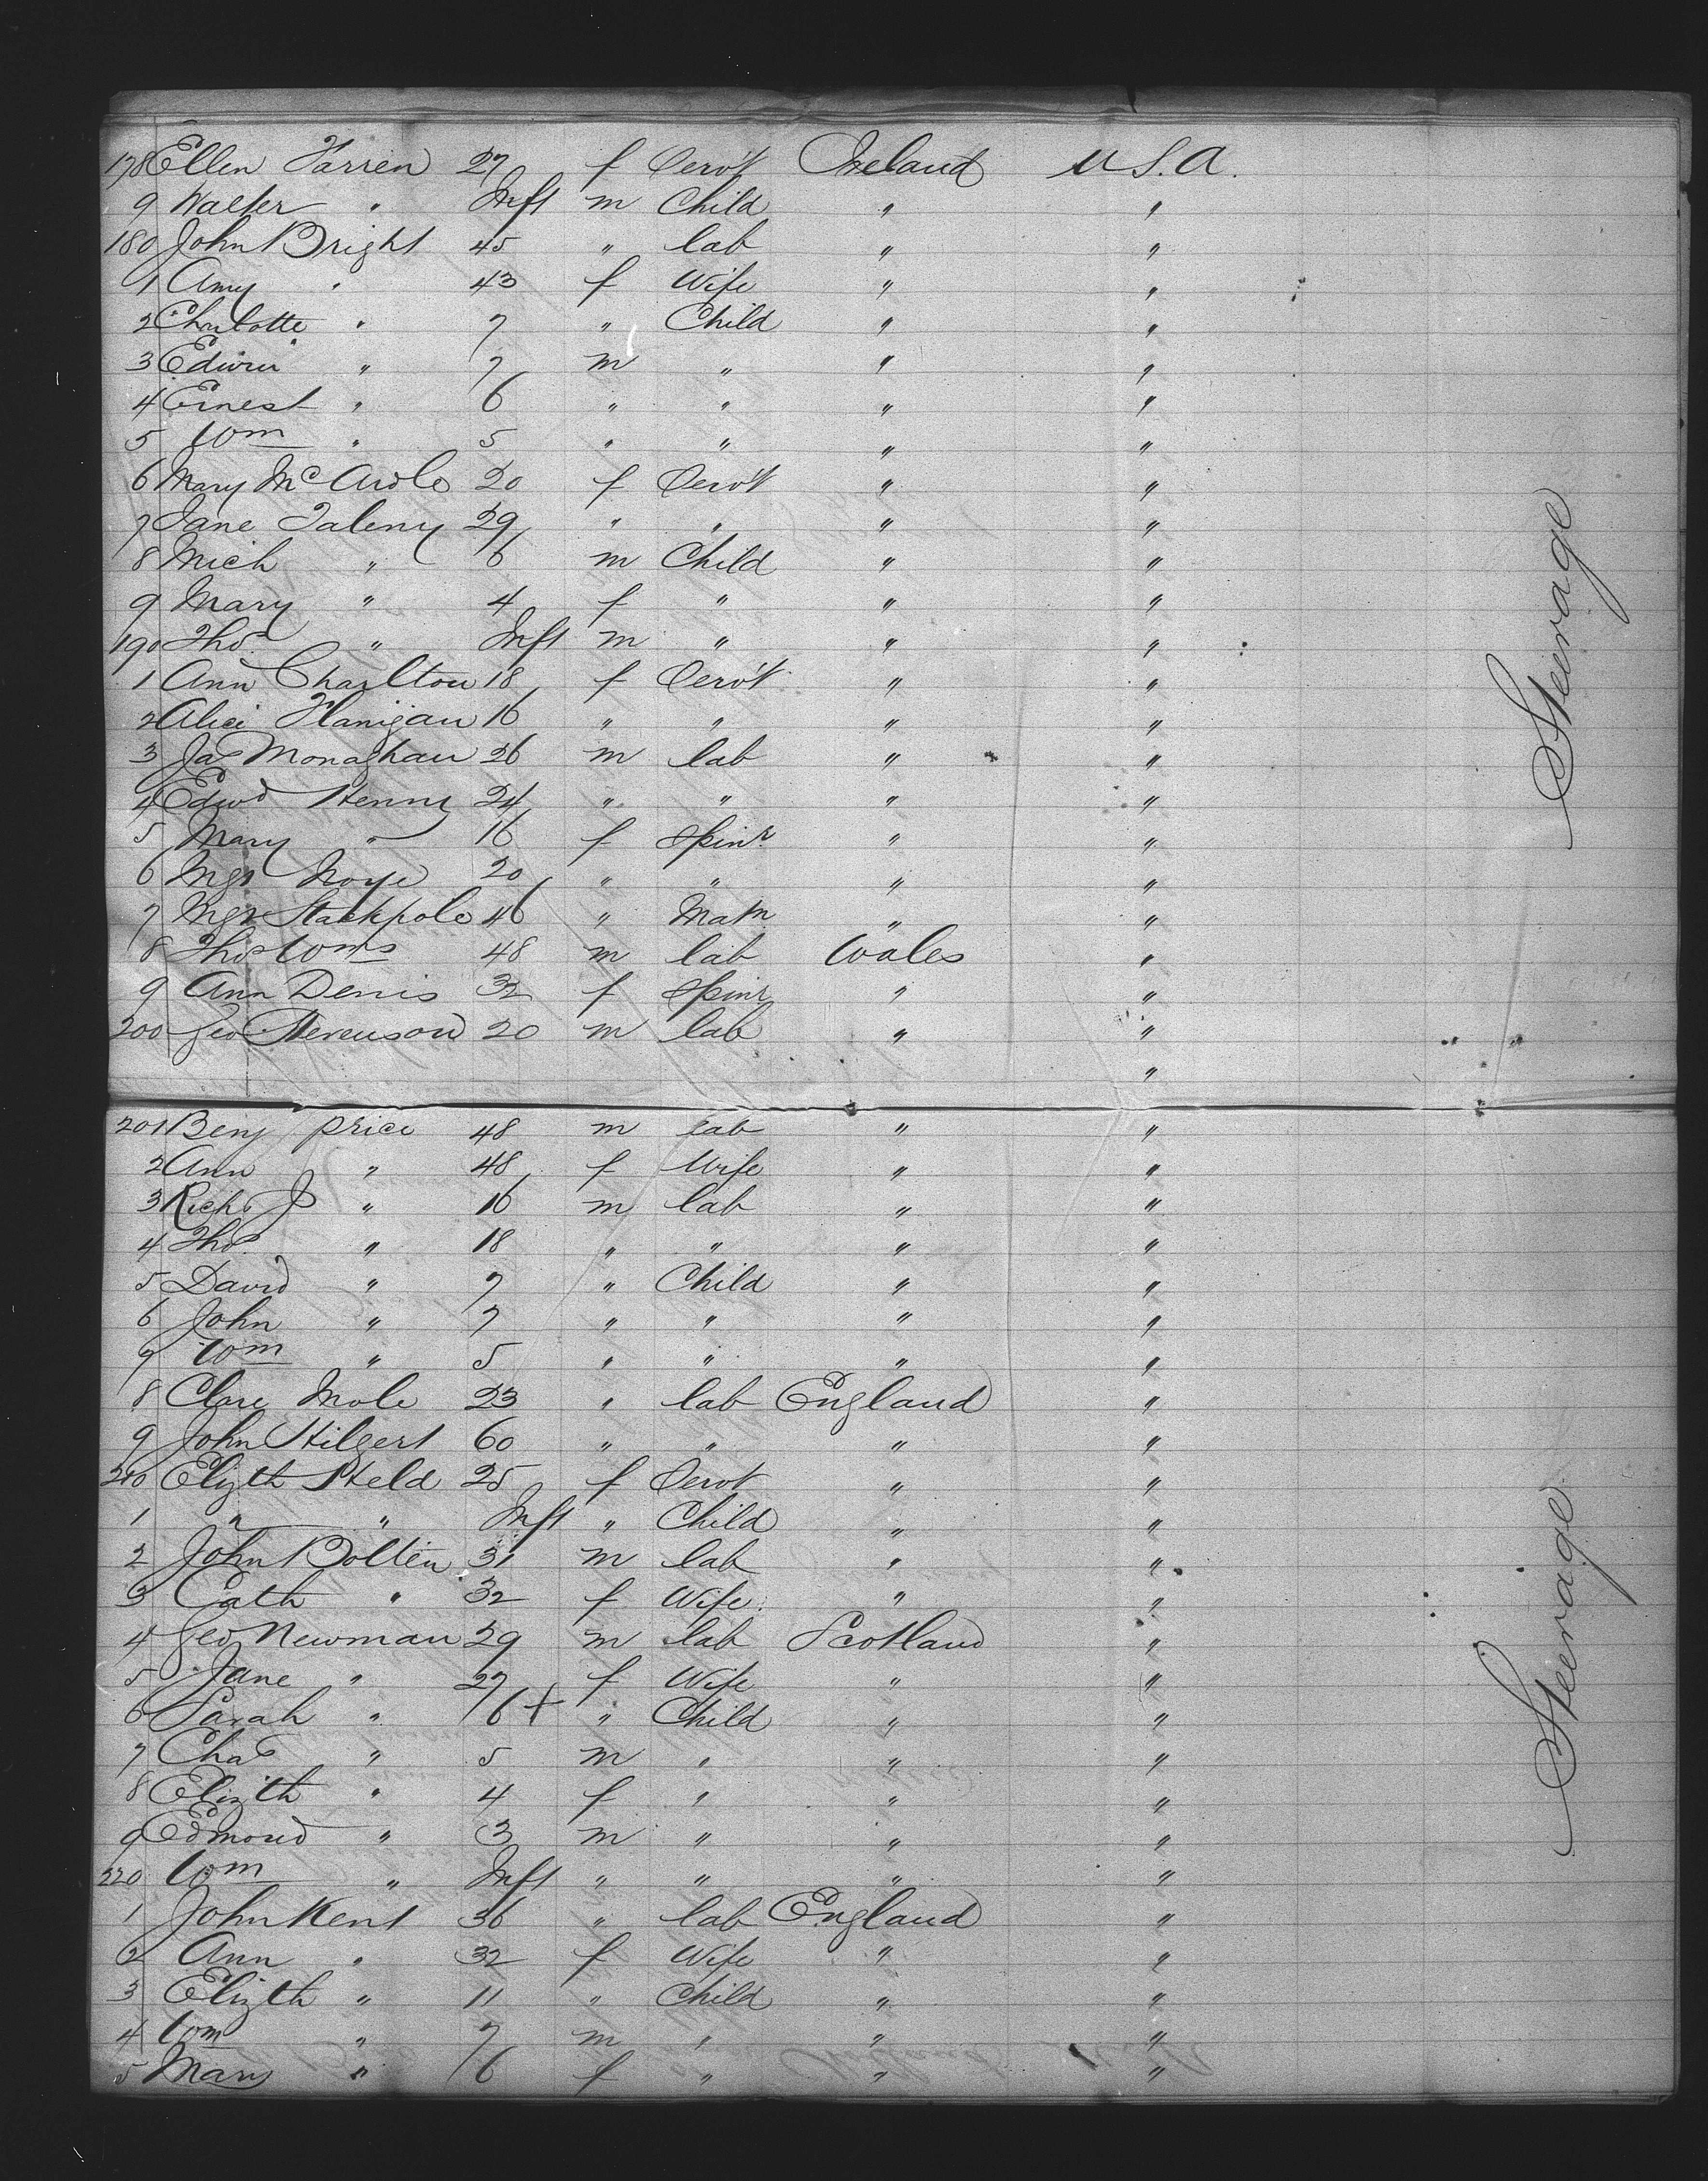 178 Ellen Farren 27 f Serv't Ireland U.S.A.
9 Walter " Inft m Child " "
180 John Bright 45 " lab " "
1 Amy " 43 f Wife " "
2 Charlotte " 7 " Child " "
3 Edwin " 7 m " " "
4 Ernest " 6 " " " "
5 Wm " 5 " " " "
6 Mary McArdle 20 f Serv't " "
7 Jane 29 " " " "
8 Mich " 6 m Child " "
9 Mary " 4 f " " "
190 Thos " Inft m " " "
1 Ann Charlton 18 f Serv't " "
2 Alice Flanigan 16 " " " "
3 Jas Monaghan 26 m lab " "
4 Edwd Henny 24 " " " "
5 Mary " 16 f Spinr " "
6 Mgt Noye 20 " " " "
7 Mgt Stackpole 46 " Matn " "
8 Thos Wms 48 m lab Wales "
9 Ann Denis 32 f Spinr " "
200 Geo Stevenson 20 m lab " "
"
201 Benj Price 48 m lab " "
2 Ann " 48 f Wife " "
3 Richd J " 16 m lab " "
4 Thos " 18 " " " "
5 David " 7 " Child " "
6 John " 7 " " " "
7 Wm " 5 " " " "
8 Clare Mole 23 " lab England "
9 John Hilgert 60 " " " "
210 Elizth Held 25 f Servt " "
1 " " Inft " Child " "
2 John Bolten 31 m lab " "
3 Cath " 32 f Wife " "
4 Geo Newman 29 m lab Scotland "
5 Jane " 27 f Wife " "
6 Sarah " 6 + " Child " "
7 Chas " 5 m " " "
8 Elizth " 4 f " " "
9 Edmond " 3 m " " "
220 Wm " Inft " " " "
1 John Kent 36 " lab England "
2 Ann " 32 f Wife " "
3 Elizth " 11 " Child " "
4 Wm " 7 m " " "
5 Mary " 6 f " " "
Steerage
Steerage